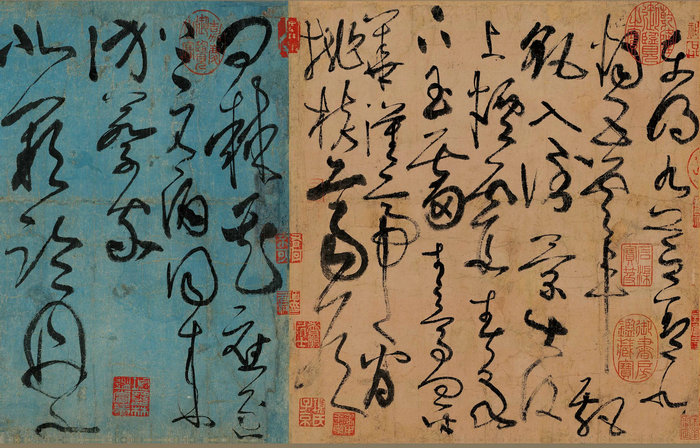 東明九芝蓋北
燭五雲車飄
飖入倒景出没
上煙霞春泉
下玉霤青鳥向金
華漢帝看
桃核齊侯
問棘花應逐
上元酒同來
訪蔡家
北闕臨丹水